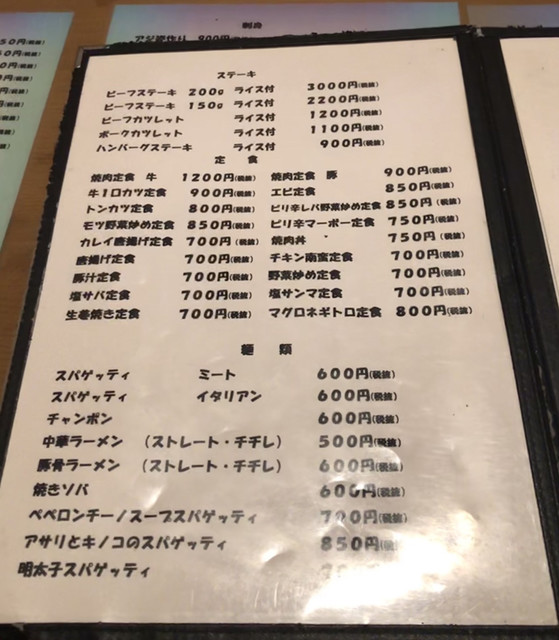 刺身
50円(税抜)
ステーキ
ビーフステーキ 200g ライス付 3000円(税抜)
ビーフステーキ 150g ライス付 2200円(税抜)
ビーフカツレット ライス付 1200円(税抜)
ポークカツレット ライス付 1100円(税抜)
ハンバーグステーキ ライス付 900円(税抜)
定 食
焼肉定食 牛 1200円(税抜) 焼肉定食 豚 900円(税抜)
牛1口カツ定食 900円(税抜) エビ定食 850円(税抜)
トンカツ定食 800円(税抜) ピリ辛レバ野菜炒め定食 850円(税抜)
モツ野菜炒め定食 850円(税抜) ピリ辛マーボー定食 750円(税抜)
カレイ唐揚げ定食 700円(税抜) 焼肉丼 750円(税抜)
唐揚げ定食 700円(税抜) チキン南蛮定食 700円(税抜)
豚汁定食 700円(税抜) 野菜炒め定食 700円(税抜)
塩サバ定食 700円(税抜) 塩サンマ定食 700円(税抜)
生姜焼き定食 700円(税抜) マグロネギトロ定食 800円(税抜)
麺 類
スパゲッティ ミート 600円(税抜)
スパゲッティ イタリアン 600円(税抜)
チャンポン 600円(税抜)
中華ラーメン (ストレート・チヂレ) 500円(税抜)
豚骨ラーメン (ストレート・チヂレ) 600円(税抜)
焼きソバ 600円(税抜)
ペペロンチーノスープスパゲッティ 700円(税抜)
アサリとキノコのスパゲッティ 850円(税抜)
明太子スパゲッティ